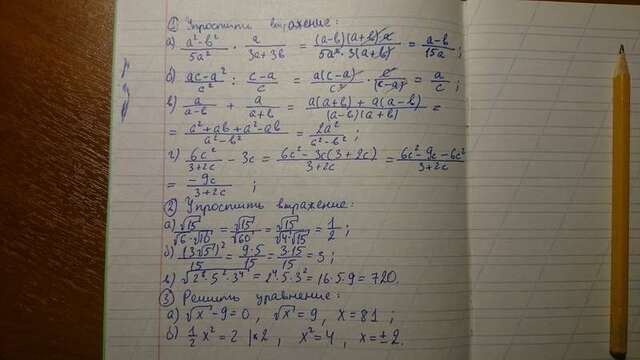 ① Упростить выражение:
а) (a²-b²)/5a² · a/(3a+3b) = (a-b)(a+b)a/(5a²·3(a+b)) = (a-b)/15a ;
б) (ac-a²)/c² : (c-a)/c = a(c-a)/c² · c/(c-a) = a/c ;
в) a/(a-b) + a/(a+b) = (a(a+b)+a(a-b))/((a-b)(a+b)) =
= (a²+ab+a²-ab)/(a²-b²) = 2a²/(a²-b²) ;
г) 6c²/(3+2c) - 3c = (6c²-3c(3+2c))/(3+2c) = (6c²-9c-6c²)/(3+2c)
= -9c/(3+2c) ;
② Упростить выражение:
а) √15/(√6·√10) = √15/√60 = √15/(√4√15) = 1/2 ;
б) (3√5)²/15 = 9·5/15 = 3·15/15 = 3 ;
в) √(2⁸·5²·3⁴) = 2⁴·5·3² = 16·5·9 = 720.
③ Решить уравнение:
а) √x - 9 = 0, √x = 9, x = 81 ;
б) 1/2 x² = 2 |·2, x² = 4, x = ±2.